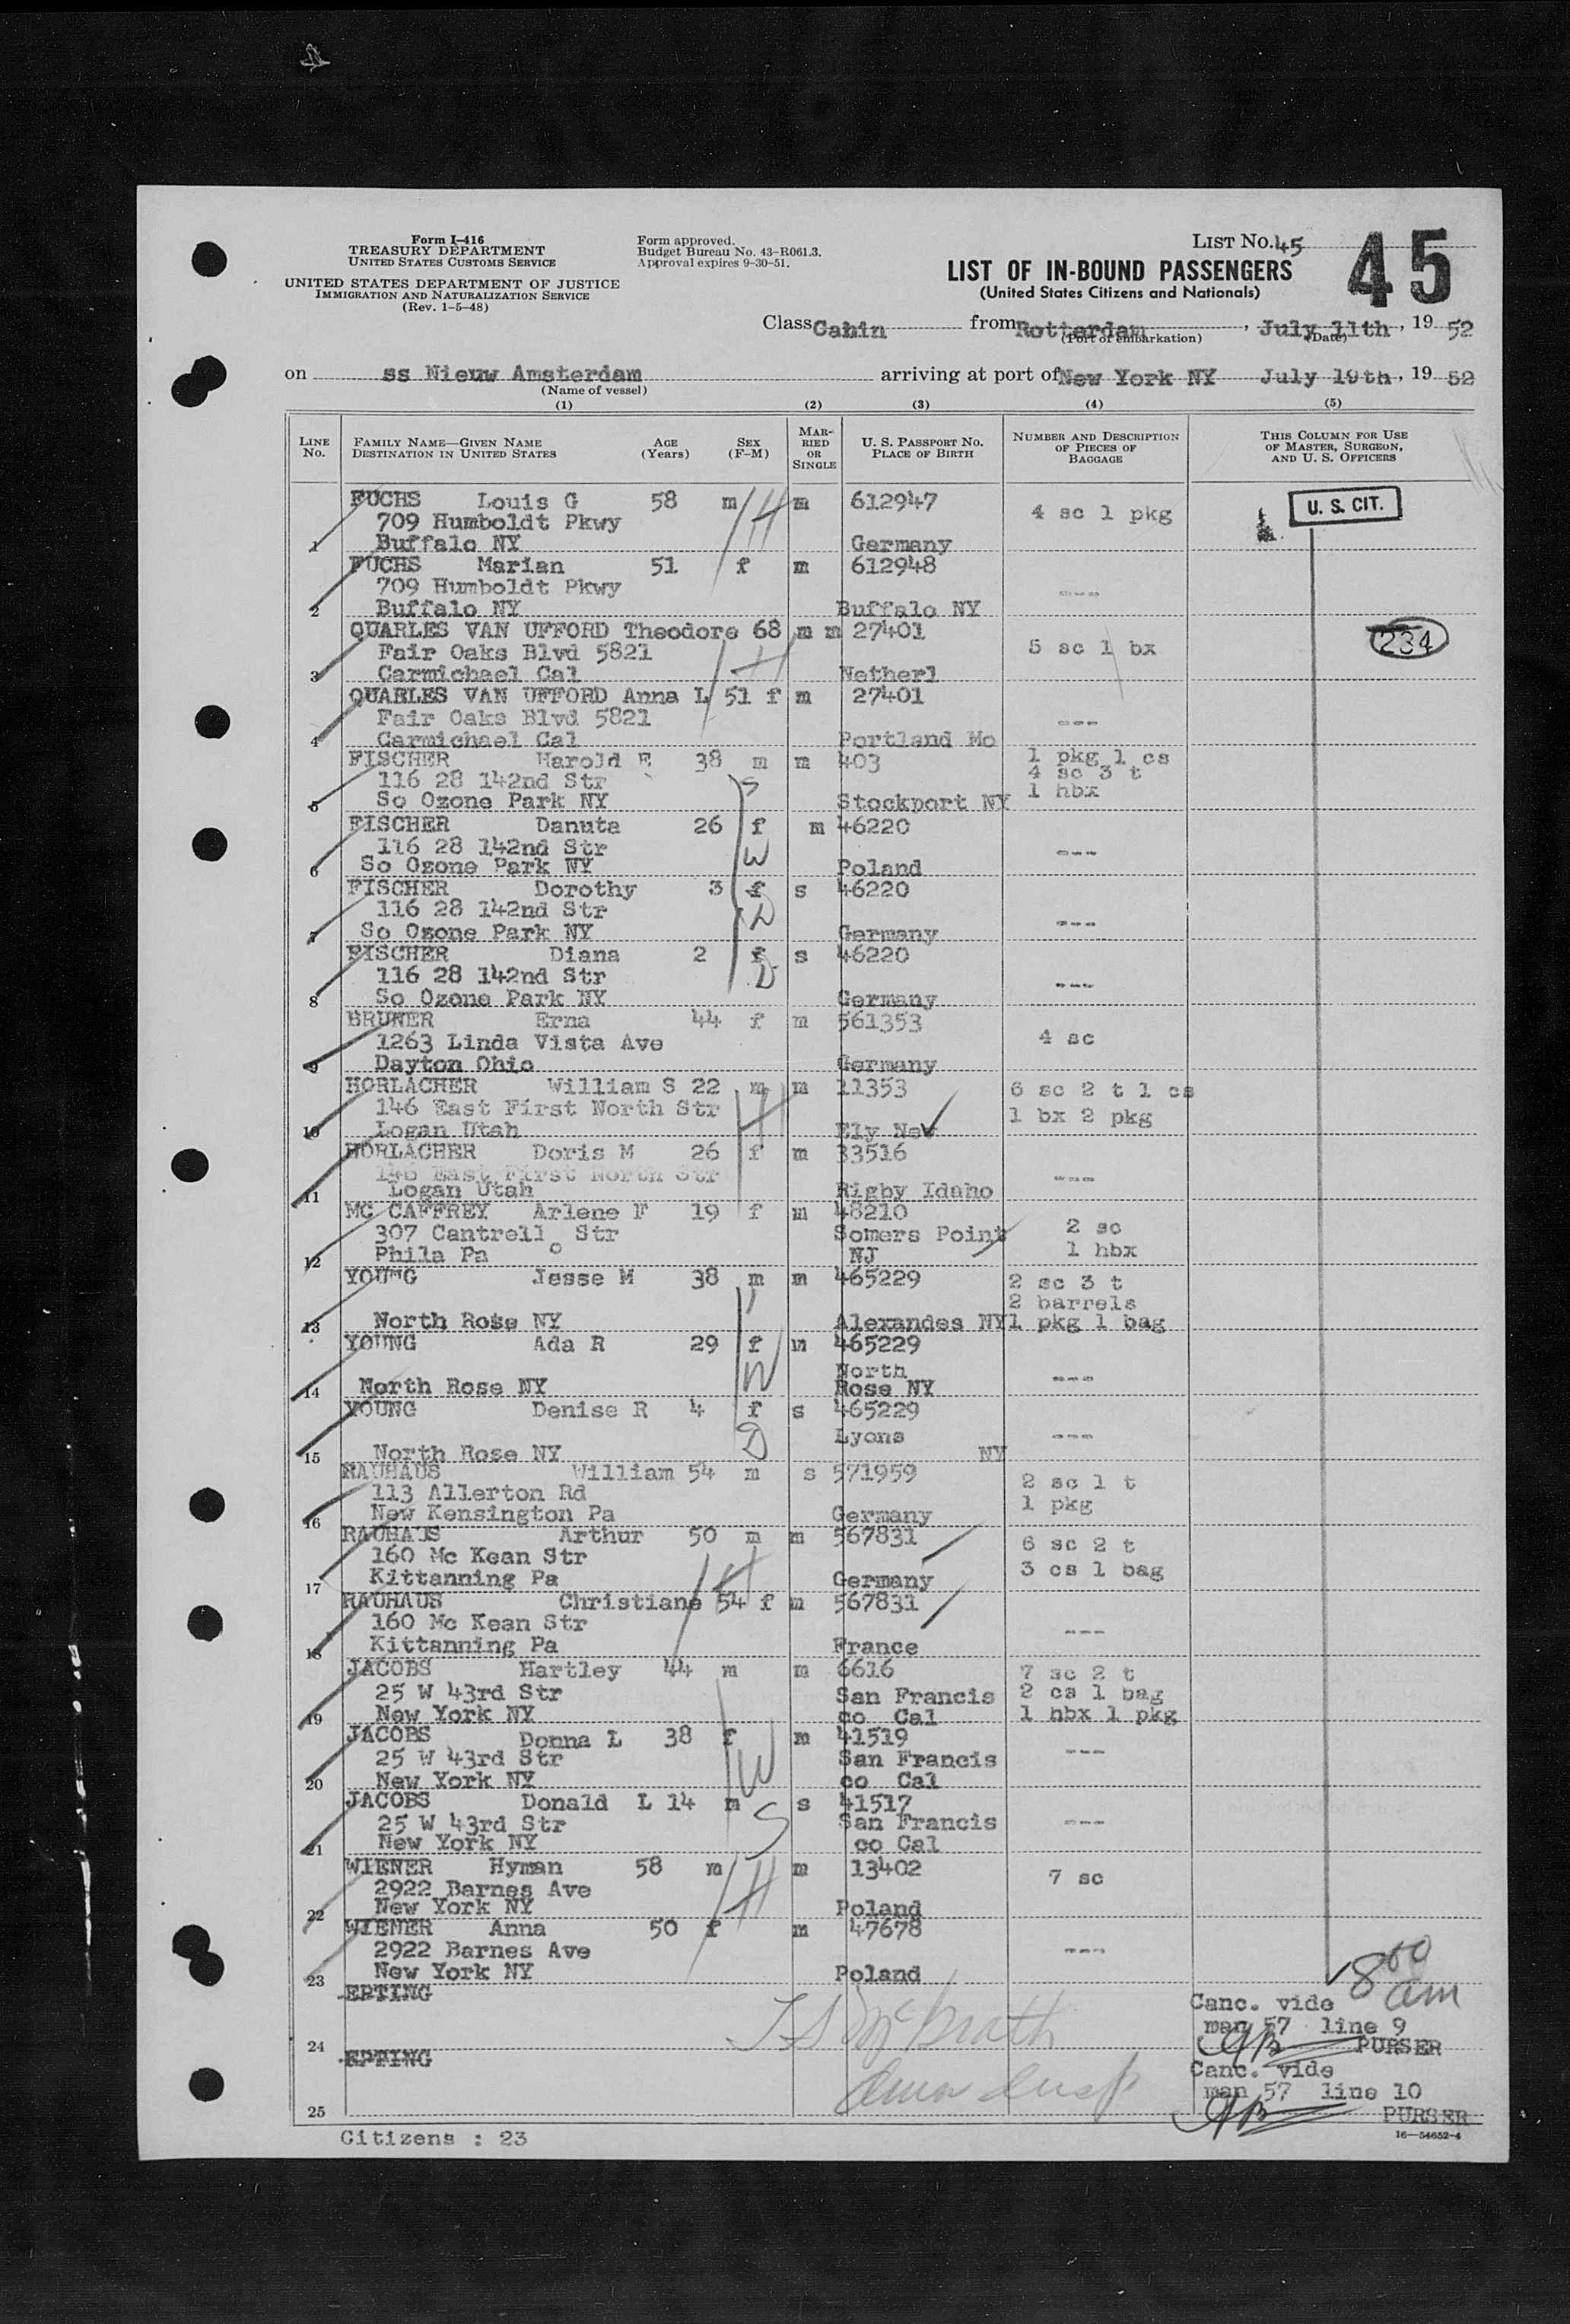 Form I-416
TREASURY DEPARTMENT
UNITED STATES CUSTOMS SERVICE
UNITED STATES DEPARTMENT OF JUSTICE
IMMIGRATION AND NATURALIZATION SERVICE
(Rev. 1-5-48)
Form approved.
Budget Bureau No. 43-R061.3.
Approval expires 9-30-51.
LIST NO. 45
45
LIST OF IN-BOUND PASSENGERS
(United States Citizens and Nationals)
Class Cabin from Rotterdam, July 11th, 19 52
(Port of embarkation) (Date)
on ss Nieuw Amsterdam arriving at port of New York NY July 19th, 19 52
(Name of vessel)
(1) (2) (3) (4) (5)
LINE No. FAMILY NAME—GIVEN NAME DESTINATION IN UNITED STATES AGE (Years) SEX (F-M) MARRIED OR SINGLE U. S. PASSPORT NO. PLACE OF BIRTH NUMBER AND DESCRIPTION OF PIECES OF BAGGAGE THIS COLUMN FOR USE OF MASTER, SURGEON, AND U. S. OFFICERS
FUCHS Louis G 58 m H m 612947 4 sc 1 pkg U. S. CIT.
709 Humboldt Pkwy
1 Buffalo NY Germany
FUCHS Marian 51 f m 612948
709 Humboldt Pkwy ---
2 Buffalo NY Buffalo NY
QUARLES VAN UFFORD Theodore 68 m m 27401 234
Fair Oaks Blvd 5821 H 5 sc 1 bx
3 Carmichael Cal Netherl
QUARLES VAN UFFORD Anna L 51 f m 27401
Fair Oaks Blvd 5821 ---
4 Carmichael Cal Portland Mo
FISCHER Harold E 38 m m 403 1 pkg 1 cs
116 28 142nd Str S 4 sc 3 t
5 So Ozone Park NY Stockport NY 1 hbx
FISCHER Danuta 26 f m 46220
116 28 142nd Str W ---
6 So Ozone Park NY Poland
FISCHER Dorothy 3 f s 46220
116 28 142nd Str D ---
7 So Ozone Park NY Germany
FISCHER Diana 2 f s 46220
116 28 142nd Str D ---
8 So Ozone Park NY Germany
BRUNER Erna 44 f m 561353
1263 Linda Vista Ave 4 sc
9 Dayton Ohio Germany
HORLACHER William S 22 m m 11353 6 sc 2 t 1 cs
146 East First North Str H 1 bx 2 pkg
10 Logan Utah Ely Nev
HORLACHER Doris M 26 f m 33516
146 East First North Str ---
11 Logan Utah Rigby Idaho
MC CAFFREY Arlene F 19 f m 48210
307 Cantrell Str Somers Point 2 sc
12 Phila Pa NJ 1 hbx
YOUNG Jesse M 38 m m 465229 2 sc 3 t
2 barrels
13 North Rose NY Alexandes NY 1 pkg 1 bag
YOUNG Ada R 29 f m 465229
W North ---
14 North Rose NY Rose NY
YOUNG Denise R 4 f s 465229
D Lyons ---
15 North Rose NY NY
RAUHAUS William 54 m s 571959
113 Allerton Rd 2 sc 1 t
16 New Kensington Pa Germany 1 pkg
RAUHAUS Arthur 50 m m 567831
160 Mc Kean Str H 6 sc 2 t
17 Kittanning Pa Germany 3 cs 1 bag
RAUHAUS Christiane 54 f m 567831
160 Mc Kean Str ---
18 Kittanning Pa France
JACOBS Hartley 44 m m 6616 7 sc 2 t
25 W 43rd Str San Francis 2 cs 1 bag
19 New York NY co Cal 1 hbx 1 pkg
JACOBS Donna L 38 f m 41519
25 W 43rd Str W San Francis ---
20 New York NY co Cal
JACOBS Donald L 14 m s 41517
25 W 43rd Str S San Francis ---
21 New York NY co Cal
WIENER Hyman 58 m m 13402
2922 Barnes Ave H 7 sc
22 New York NY Poland
WIENER Anna 50 f m 47678
2922 Barnes Ave ---
23 New York NY Poland
8 00 am
EPTING Canc. vide
man 57 line 9
24 PURSER
EPTING Canc. vide
man 57 line 10
25 PURSER
Citizens : 23
16—54652-4